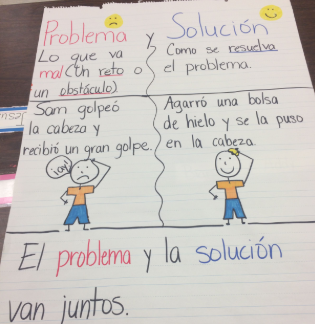 Problema y Solución
Lo que va
mal (Un reto o
un obstáculo)
Como se resuelva
el problema.
Sam golpeó
la cabeza y
recibió un gran golpe.
Agarró una bolsa
de hielo y se la puso
en la cabeza.
¡ay!
El problema y la solución
van juntos.